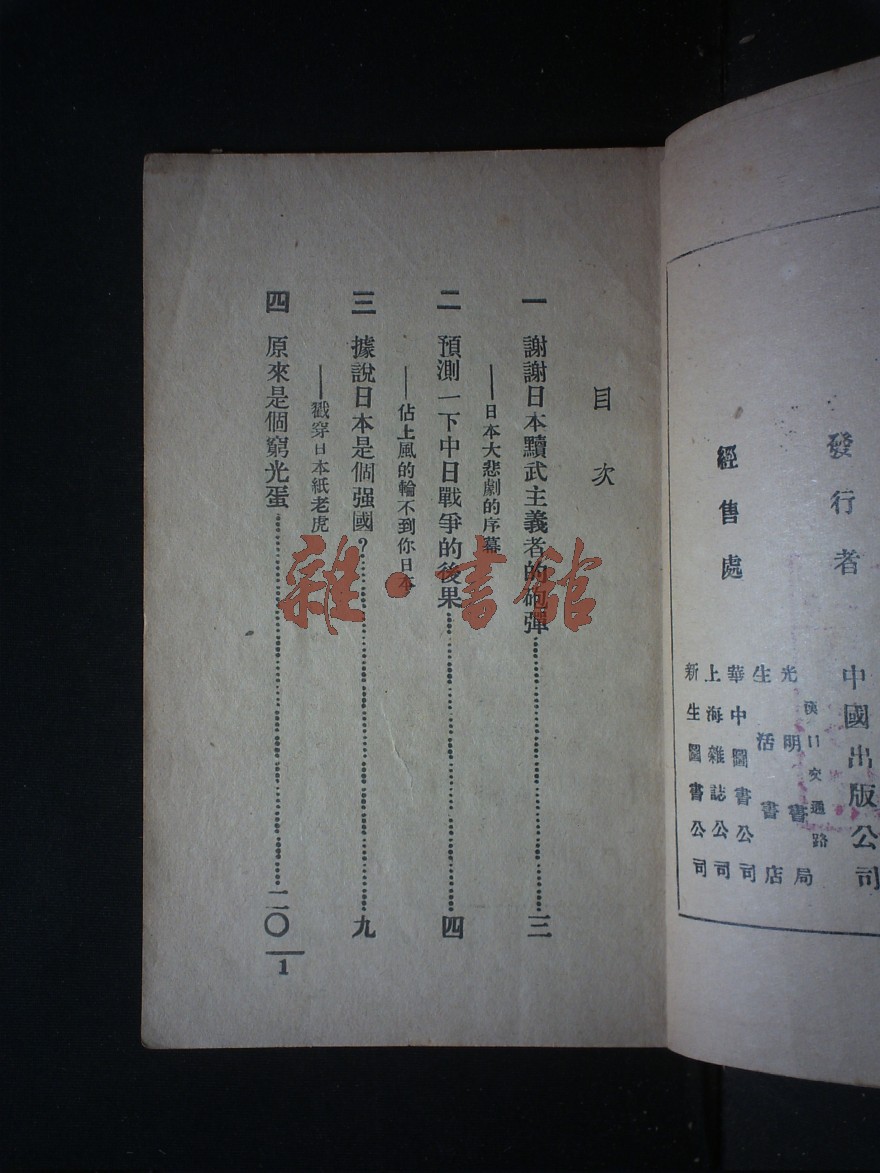 發行者 中國出版公司
漢口交通路
經售處
光明書局
生活書店
華中圖書公司
上海雜誌公司
新生圖書公司
目次
一 謝謝日本黷武主義者的砲彈……三
——日本大悲劇的序幕
二 預測一下中日戰爭的後果……四
——佔上風的輪不到你日本
三 據說日本是個强國?……九
——戳穿日本紙老虎
四 原來是個窮光蛋……二〇
1
雜·書館